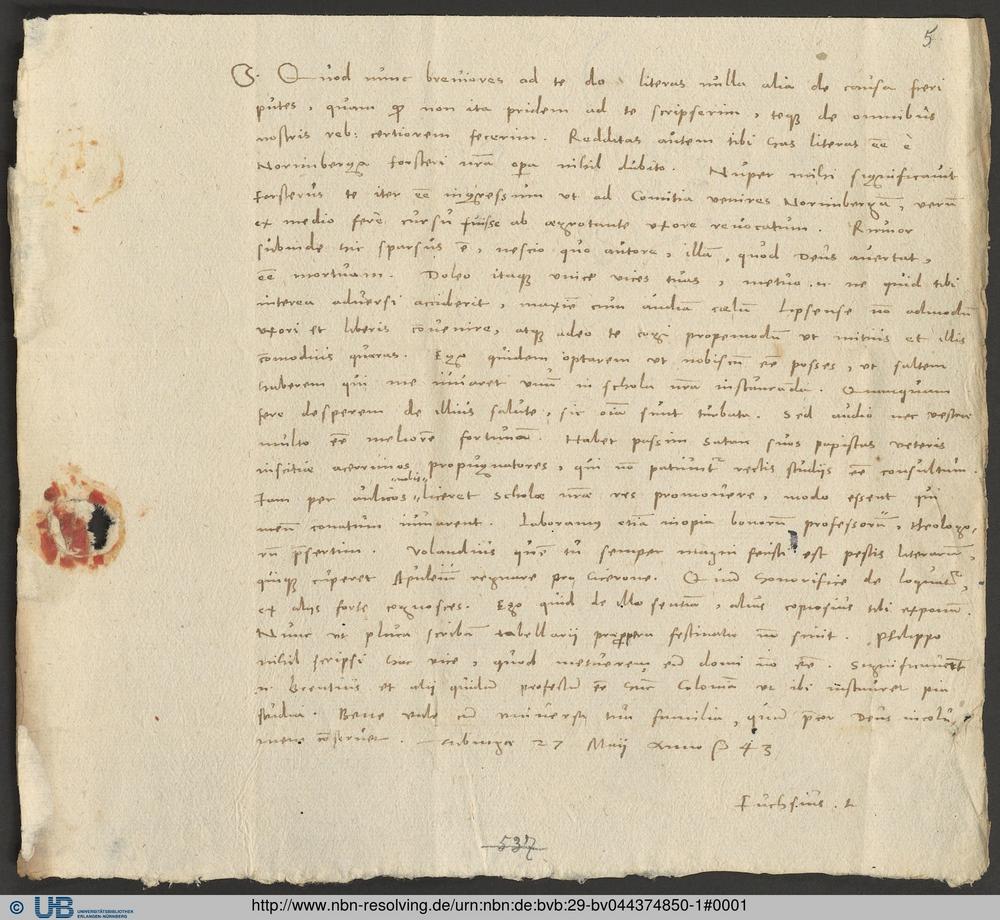 5
S. Quod nunc breviores ad te do literas nulla alia de causa fieri
putes, quam q̃ non ita pridem ad te scripserim, teq; de omnibus
nostris reb: certiorem fecerim. Redditas autem tibi has literas eē è
Norimberga forsteri nrã opa nihil dubito. Nuper mihi significavit
forsterus te iter eē ingressum ut ad Comitia venires Norimbergã, verũ
ex medio fere cursu fuisse ab aegrotante uxore revocatum. Rumor
subinde hic sparsus ē, nescio quo autore, illã, quod Deus avertat,
eē mortuam. Doleo itaq; vince vices tuas, metuo .n. ne quid tibi
interea adversi acciderit, maxie cum audiã coelũ Lipsense nõ admodũ
uxori et liberis cõvenire, atq; adeo te cogi propemodũ ut mitius et illis
cõmodius quaeras. Ego quidem optarem ut nobiscũ eē posses, ut saltem
haberem qui me iuvaret unũ in schola nrã instauranda. Quanquam
fere desperem de illius salute, sic oĩa sunt turbata. Sed audio nec vestrae
multo eē meliorē fortunã. Habet passim Satan suos papistas veteris
inscitiae acerrimos propugnatores, qui nõ patiunt~ rectis studiis eē consultum.
Iam per aulicos liceret Scholae nrae res promovere, modo essent qui
meũ conatum iuvarent. Laboramus etiã inopia bonorũ professorũ, theologo,
rũ p̃sertim. Volandius quẽ tu semper magni fecisti est pestis literarũ,
quiq; cuperet Apuleiũ regnare pro Cicerone. Quam honorifice de loquat~,
ex aliis forte cognosces. Ego quid de illo sentiã, alias copiosius tibi exponã.
Nunc ut plura scribã tabellarii praepropera festinatio nõ sinit. Philippo
nihil scripsi hac vice, quod metuerem eũ domi nõ eē. Significaverũt
.n. Brentius et alii quidã profectũ eē hinc Coloniã ut ibi instauret pia
studia. Bene vale cũ universa tua familia, quam p̃cor Deus incolu-
mem cõservet. Tubingae 27 Maij Anno 43
Fuchsius. t
537
© UB UNIVERSITÄTSBIBLIOTHEK
ERLANGEN-NÜRNBERG
http://www.nbn-resolving.de/urn:nbn:de:bvb:29-bv044374850-1#0001